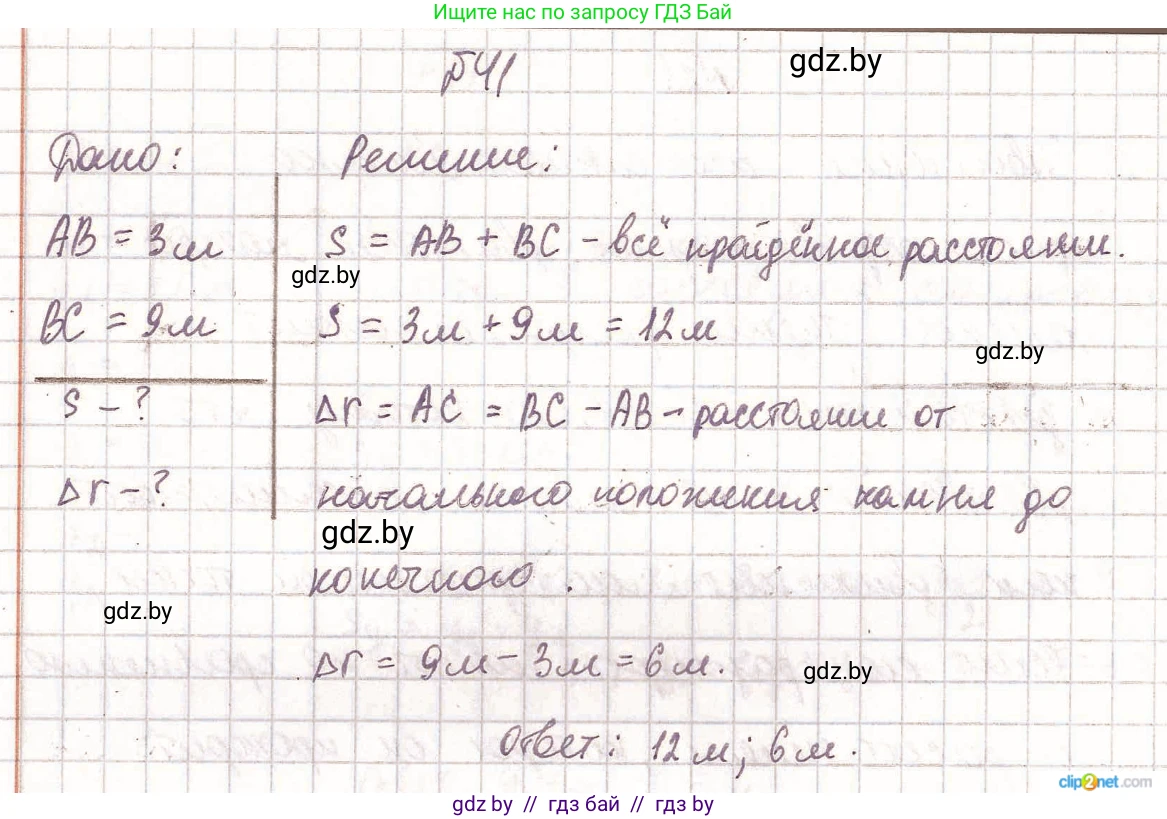 Ищите нас по запросу ГДЗ Бай
№41
gdz.by
Дано:
Решение:
AB = 3м
S = AB + BC - всё пройдённое расстояние.
gdz.by
BC = 9м
S = 3м + 9м = 12м
gdz.by
S - ?
Δr = AC = BC - AB - расстояние от
Δr - ?
начального положения камня до
gdz.by
конечного.
gdz.by
Δr = 9м - 3м = 6м.
gdz.by
Ответ: 12м; 6м.
clip2net.com
gdz by // гдз бай // гдз by